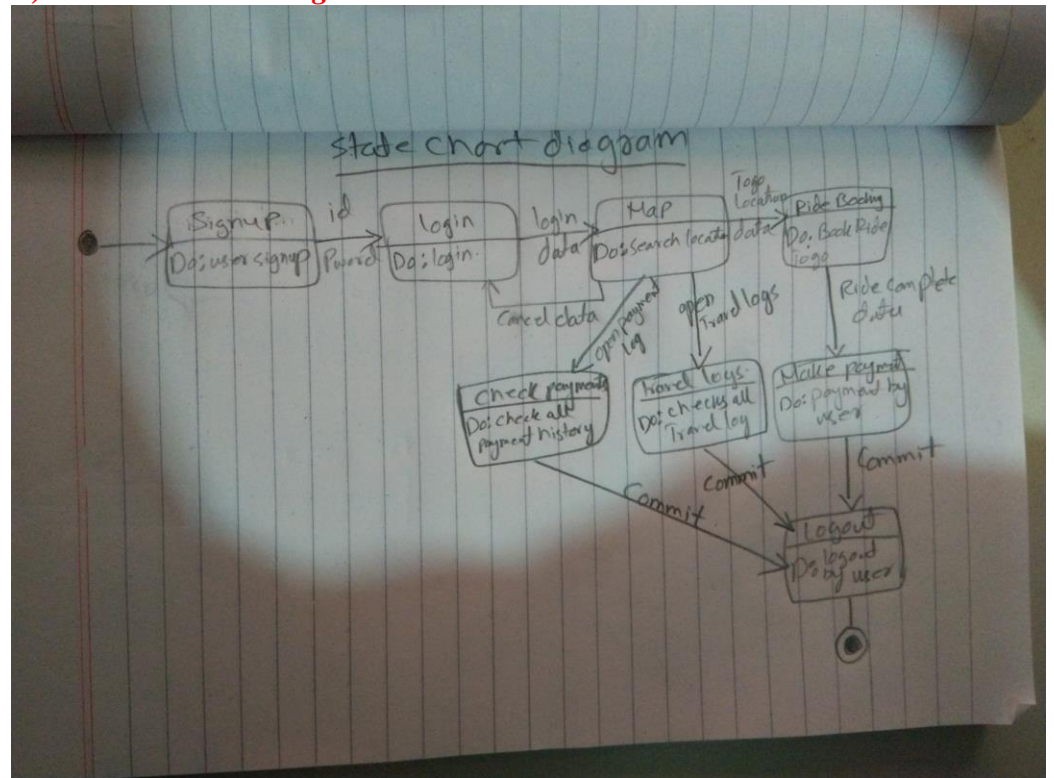 State chart diagram
Signup
Do: user signup
id
login
Do: login.
login
data
Map
Do: search locatn
Togo
Location
data
Ride Booking
Do: Book Ride
Togo
Cancel data
open payment
log
open
Travel logs
Ride complete
data
check payments
Do: check all
payment history
Travel logs.
Do: checks all
Travel log
Make payment
Do: payment by
user
Commit
Commit
Commit
Logout
Do: logout
by user